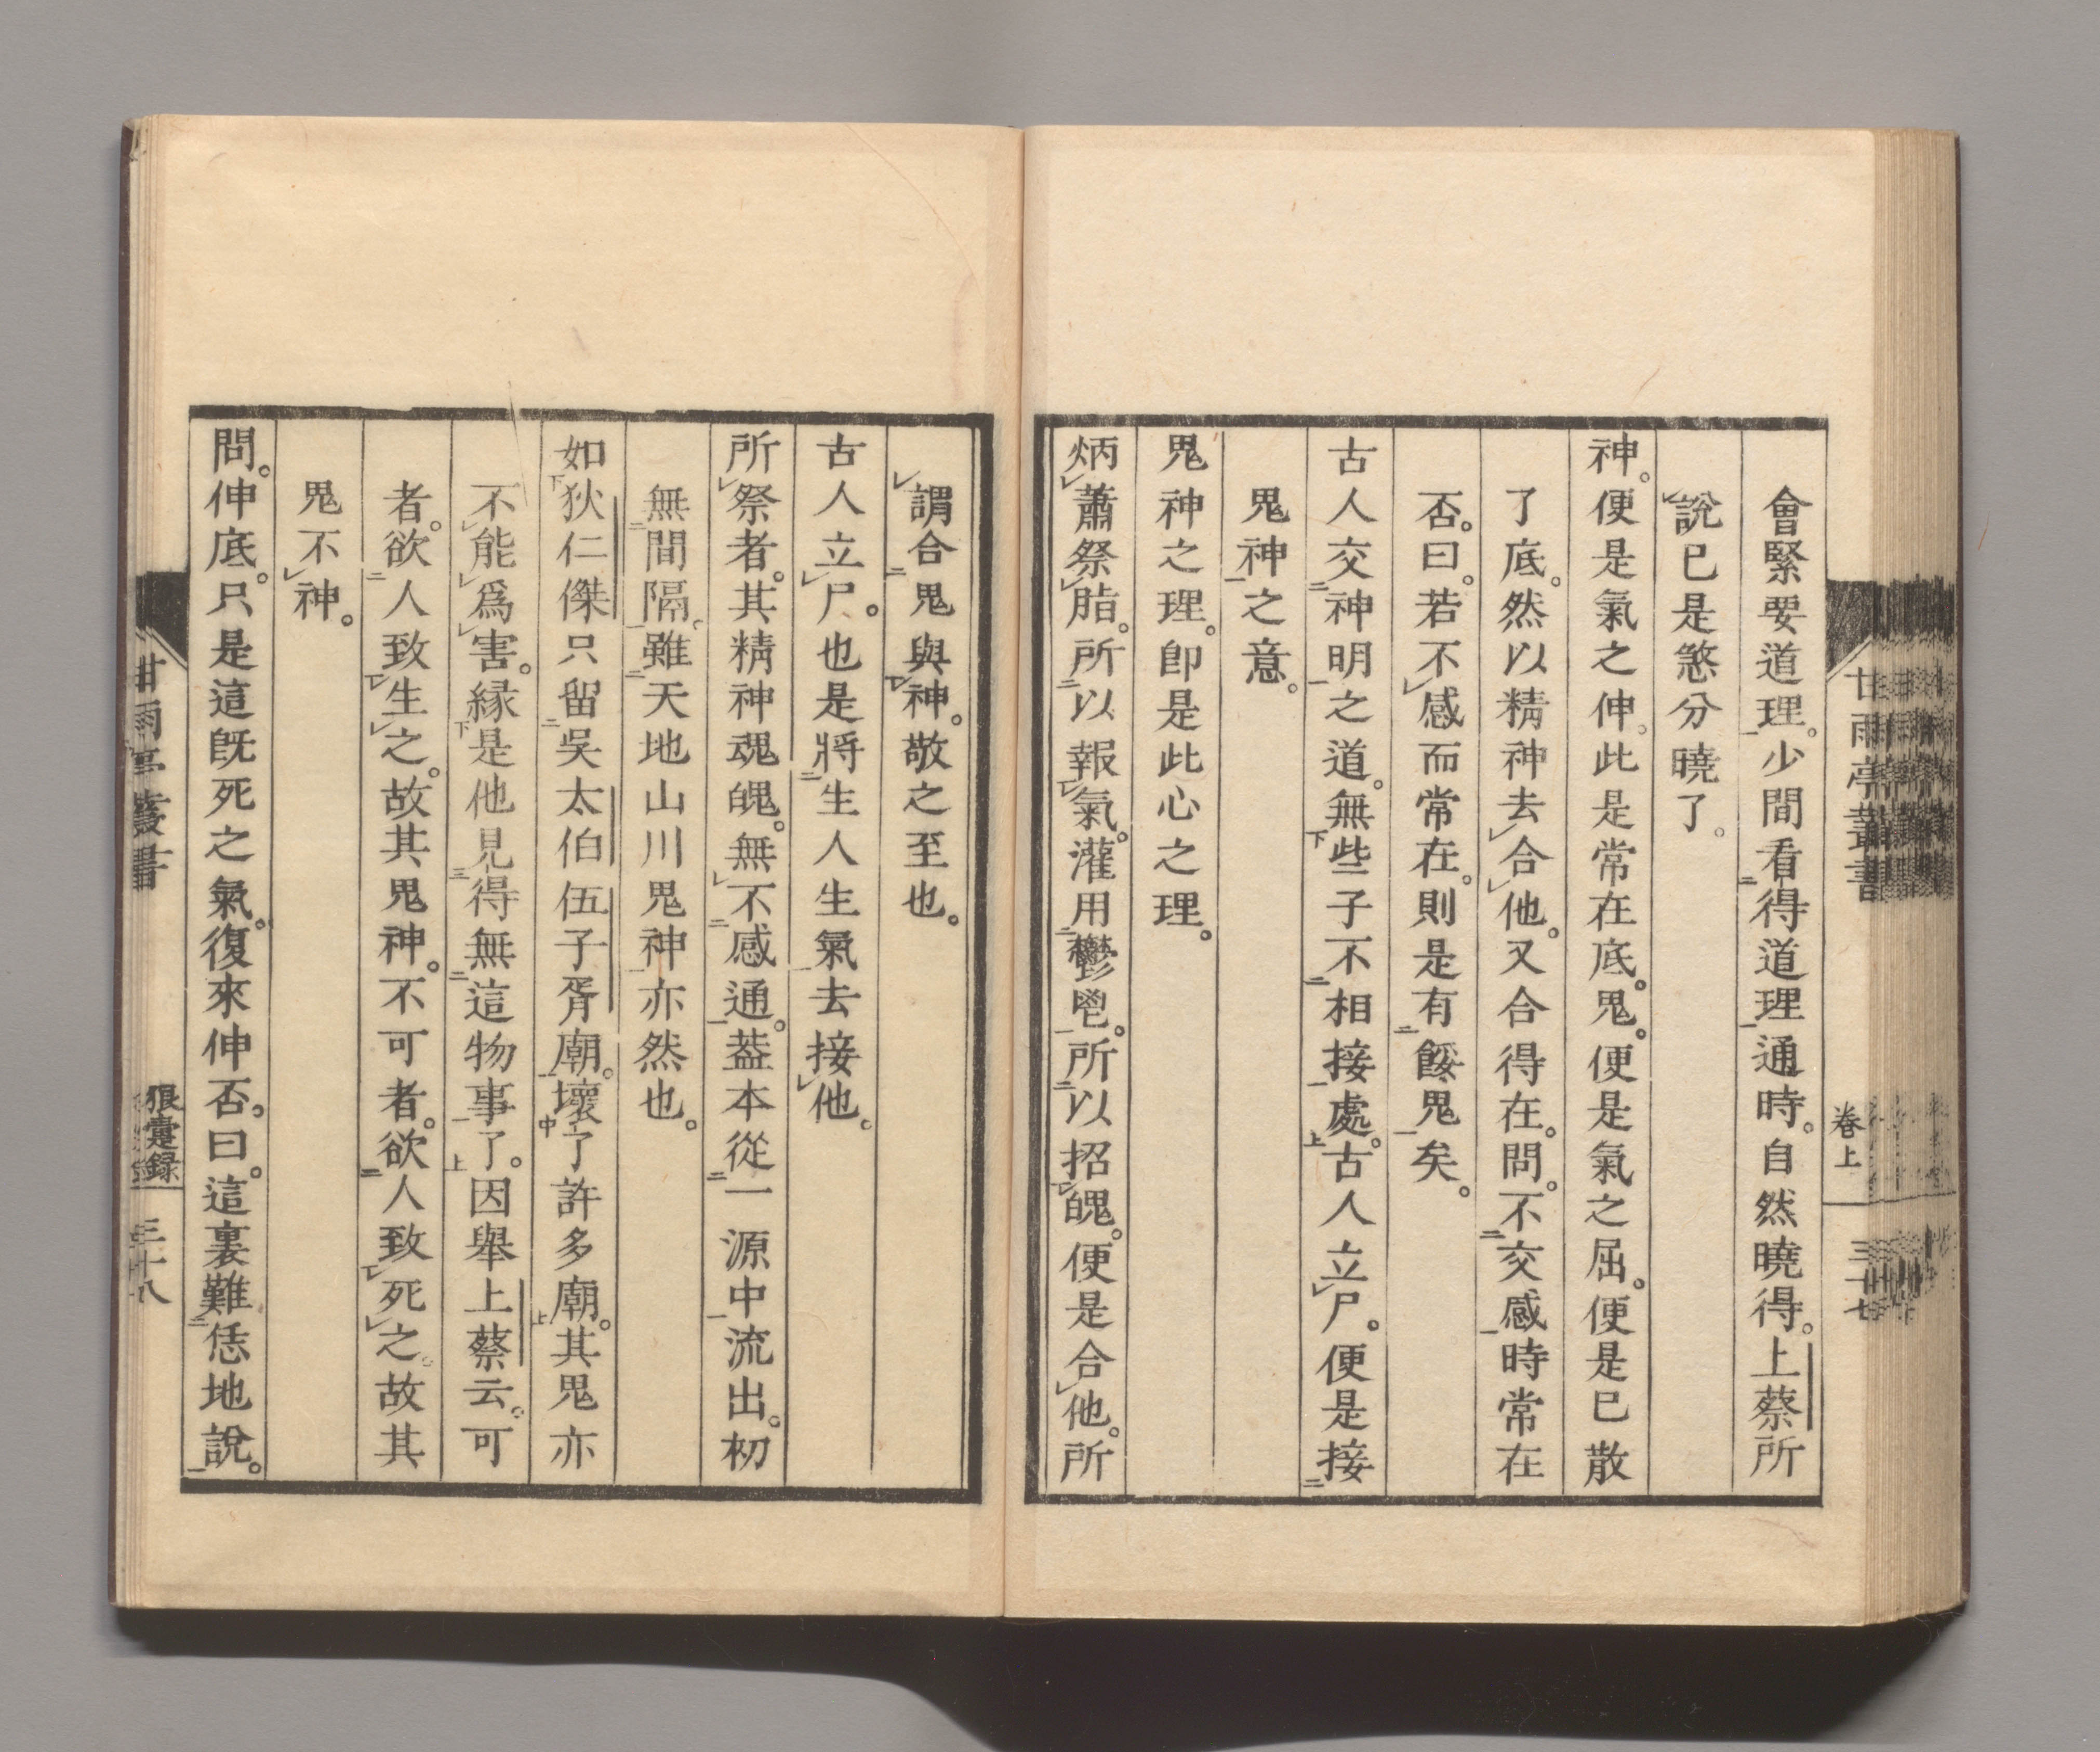 會緊要道理。少間看得道理通時。自然曉得。上蔡所
說已是煞分曉了。
神。便是氣之伸。此是常在底。鬼。便是氣之屈。便是已散
了底。然以精神去合他。又合得在。問。不交感時常在
否。曰。若不感而常在。則是有餒鬼矣。
古人交神明之道。無些子不相接處。古人立尸。便是接
鬼神之意。
鬼神之理。卽是此心之理。
炳蕭祭脂。所以報氣。灌用鬱鬯。所以招魄。便是合他。所
謂合鬼與神。敬之至也。
古人立尸。也是將生人生氣去接他。
所祭者。其精神魂魄。無不感通。葢本從一源中流出。初
無間隔。雖天地山川鬼神亦然也。
如狄仁傑只留吳太伯伍子胥廟。壞了許多廟。其鬼亦
不能爲害。緣是他見得無這物事了。因舉上蔡云。可
者。欲人致生之。故其鬼神。不可者。欲人致死之。故其
鬼不神。
問。伸底。只是這旣死之氣。復來伸否。曰。這裏難恁地說。
甘雨亭叢書
卷上
三十七
甘雨亭叢書
狼疐録
三十八